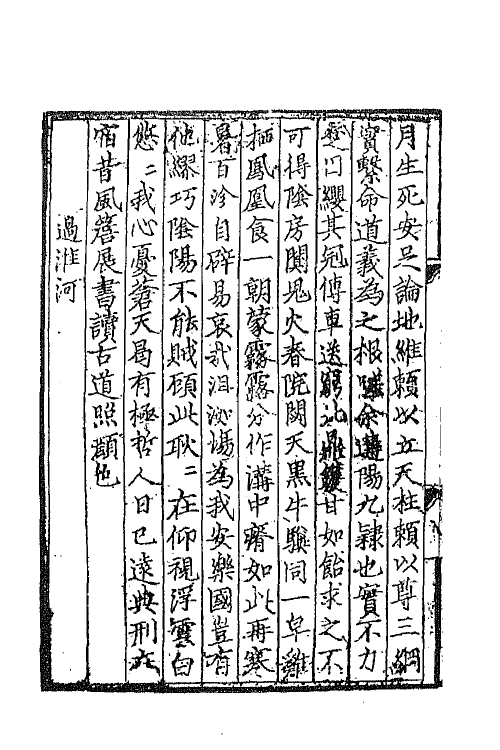 月生死安足論地維賴以立天柱賴以尊三綱
實繫命道義為之根嗟余遘陽九隷也實不力
楚囚纓其冠傳車送窮北鼎鑊甘如飴求之不
可得陰房闃鬼火春院閟天黑牛驥同一皁雞
栖鳳凰食一朝蒙霧露分作溝中瘠如此再寒
暑百沴自辟易哀哉沮洳場為我安樂國豈有
他繆巧陰陽不能賊顧此耿〻在仰視浮雲白
悠〻我心憂蒼天曷有極哲人日已遠典刑在
宿昔風簷展書讀古道照顏色
過淮河